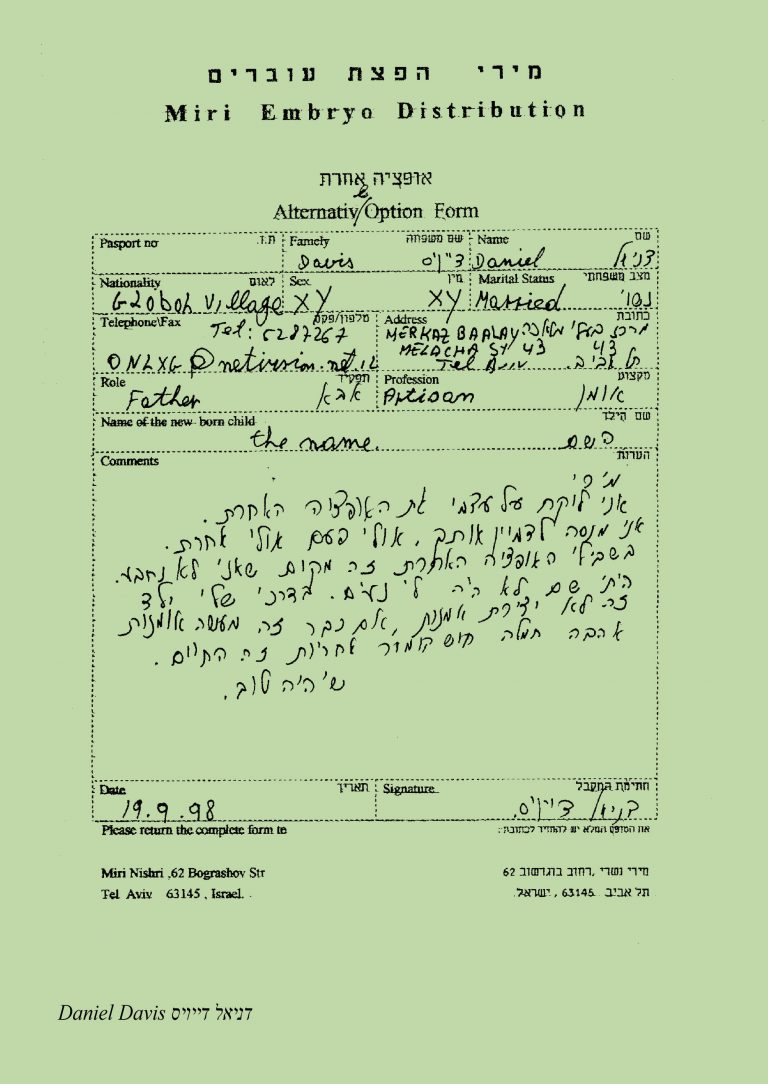 מירי הפצת עוברים
Miri Embryo Distribution
אופציה אחרת
Alternative/Option Form
Pasport no ת.ז. Famely שם משפחה Name שם
Davis דייויס Daniel דניאל
Nationality לאום Sex מין Marital Status מצב משפחתי
Global Village XY XY Married נשוי
Telephone\Fax טלפון/פקס Address כתובת
Tel: 5287267 MERKAZ BAALAY מרכז בעלי מלאכה
MELACHA ST 43 43
@netvision.net.il Tel Aviv תל אביב.
Role תפקיד Profession מקצוע
Father אבא Artisan אומן
Name of the new born child שם הילד
the name. השם
Comments הערות
מירי
אני לוקח על עצמי את האופציה האחרת.
אני מנסה לדמיין אותך, אולי פעם אולי אחרת.
בשבילי האופציה האחרת זה מקום שאני לא נחבא.
הייתי שם לא היה לי נעים. בדרכי שלי ילד
זה לא יצירת אמנות, אם כבר זה מעשה אומנות
אהבה חמלה חוש הומור אחריות זה החיים.
שיהיה טוב.
Date תאריך Signature חתימת המקבל
19.9.98 דניאל דייויס.
Please return the complete form to את הטופס המלא יש להחזיר לכתובת:
Miri Nishri ,62 Bograshov Str מירי נשרי, רחוב בוגרשוב 62
Tel Aviv 63145 , Israel. תל אביב 63145, ישראל.
Daniel Davis דניאל דייויס